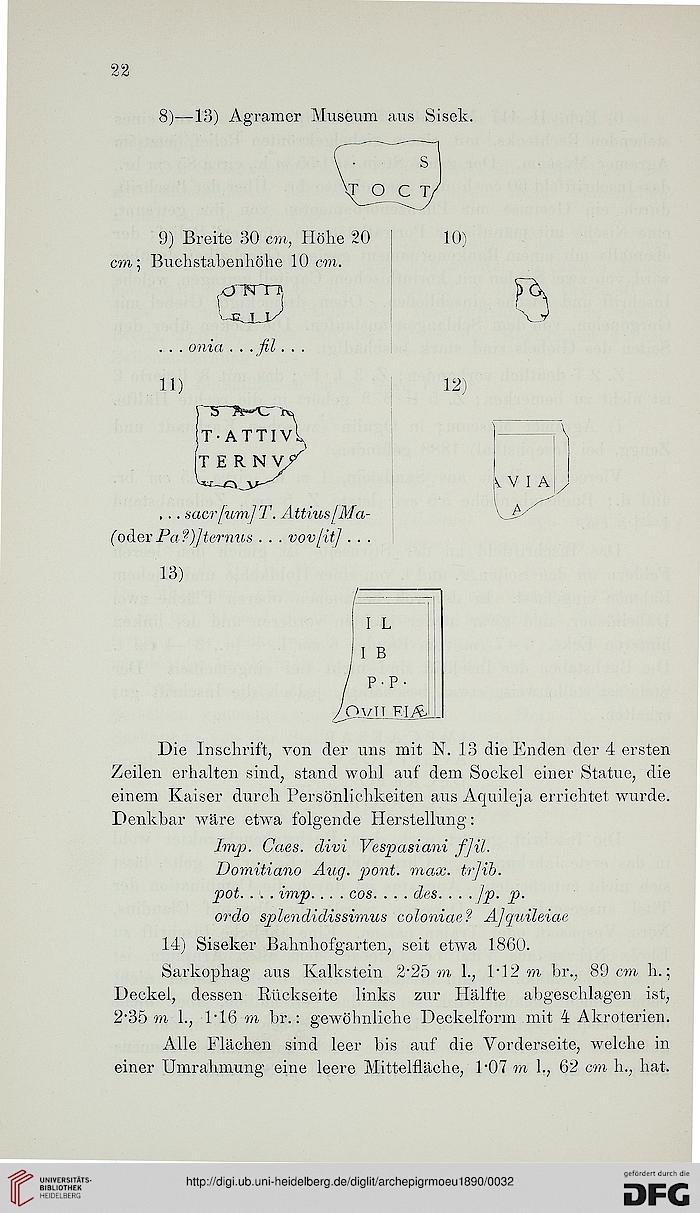 22
8)—13) Agramer Museum aus Sisek.
· S
T O C T
9) Breite 30 cm, Höhe 20
cm; Buchstabenhöhe 10 cm.
. . . onia . . . fil . . .
10)
11)
T·ATTIV
TERNVS
. . . sacr[um] T. Attius [Ma-
(oder Pa?)]ternus . . . vov[it] . . .
12)
VIA
A
13)
I L
I B
P·P·
Die Inschrift, von der uns mit N. 13 die Enden der 4 ersten
Zeilen erhalten sind, stand wohl auf dem Sockel einer Statue, die
einem Kaiser durch Persönlichkeiten aus Aquileja errichtet wurde.
Denkbar wäre etwa folgende Herstellung:
Imp. Caes. divi Vespasiani f]il.
Domitiano Aug. pont. max. tr]ib.
pot. . . . imp. . . . cos. . . . des. . . . ]p. p.
ordo splendidissimus coloniae? A]quileiae
14) Siseker Bahnhofgarten, seit etwa 1860.
Sarkophag aus Kalkstein 2·25 m l., 1·12 m br., 89 cm h.;
Deckel, dessen Rückseite links zur Hälfte abgeschlagen ist,
2·35 m l., 1·16 m br.: gewöhnliche Deckelform mit 4 Akroterien.
Alle Flächen sind leer bis auf die Vorderseite, welche in
einer Umrahmung eine leere Mittelfläche, 1·07 m l., 62 cm h., hat.
UNIVERSITÄTS-
BIBLIOTHEK
HEIDELBERG
http://digi.ub.uni-heidelberg.de/diglit/archepigrmoeu1890/0032
gefördert durch die
DFG